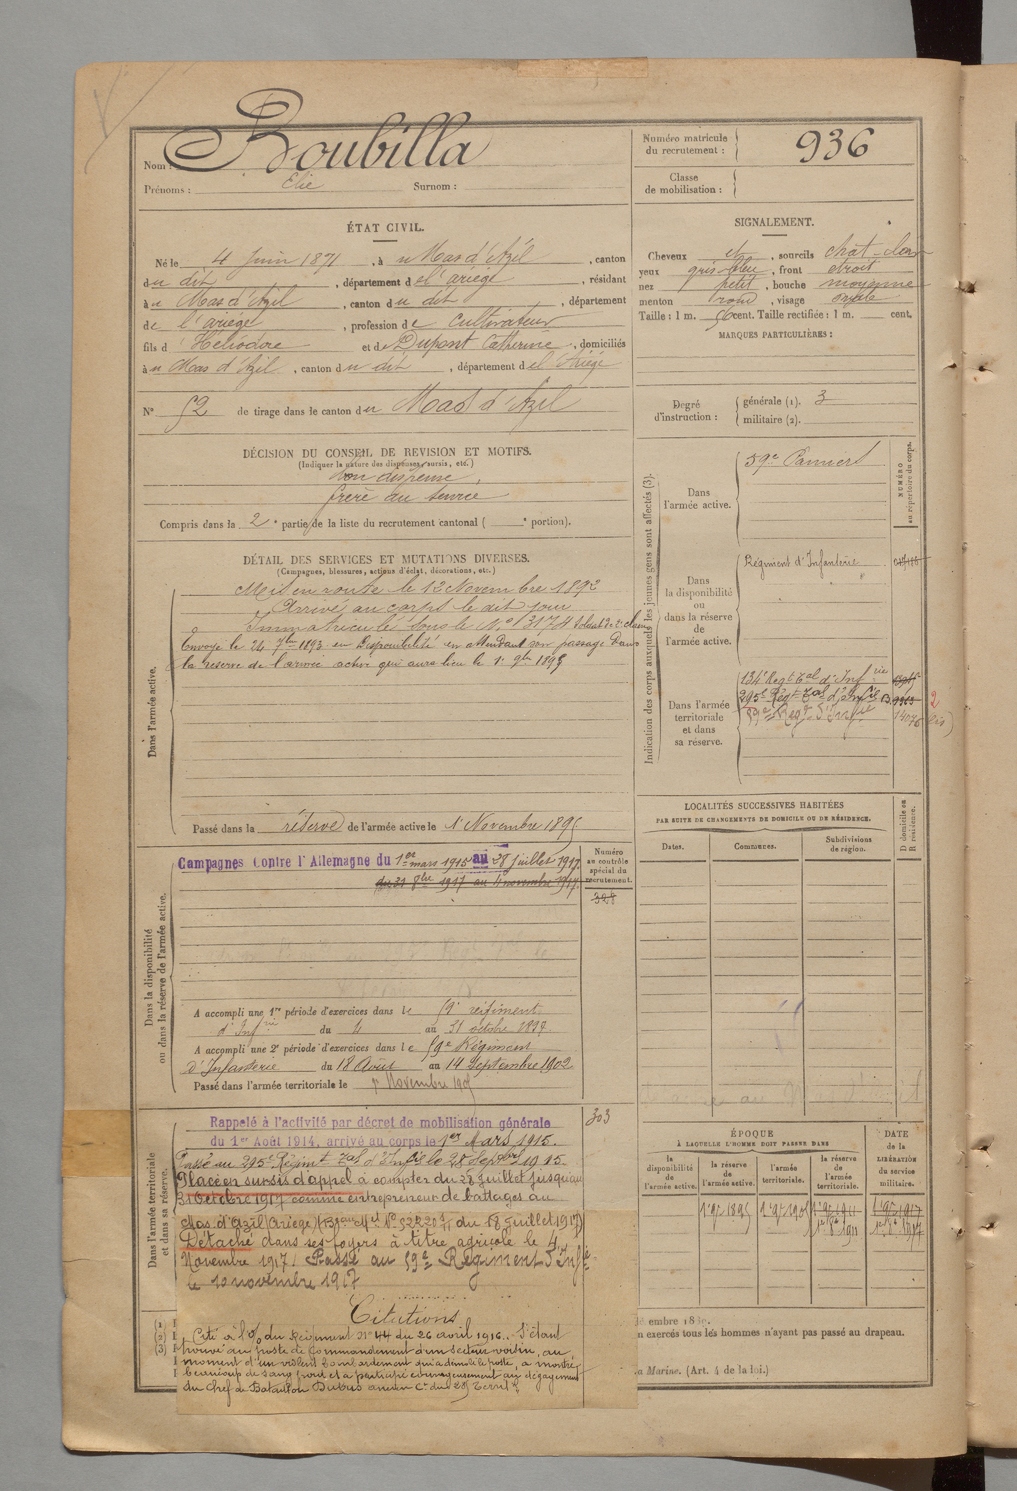 Nom : Boubilla
Prénoms : Elie Surnom :
Numéro matricule du recrutement : 936
Classe de mobilisation :
ÉTAT CIVIL.
Né le 4 Juin 1871, à u Mas d'Azil, canton
du dit, département de l'ariège, résidant
à u Mas d'Azil, canton du dit, département
de l'ariège, profession de Cultivateur
fils d'Héliodore et de Dupont Catherine, domiciliés
à u Mas d'Azil, canton du dit, département de l'Ariège
No 52 de tirage dans le canton du Mas d'Azil
SIGNALEMENT.
Cheveux et, sourcils chat-clair
yeux gris-bleu, front etroit
nez petit, bouche moyenne
menton rond, visage ovale
Taille : 1 m. 56 cent. Taille rectifiée : 1 m. cent.
MARQUES PARTICULIÈRES :
Degré d'instruction : générale (1). 3
militaire (2).
DÉCISION DU CONSEIL DE REVISION ET MOTIFS.
(Indiquer la nature des dispenses, sursis, etc.)
bon dispensé,
frère au service
Compris dans la 2e partie de la liste du recrutement cantonal ( e portion).
DÉTAIL DES SERVICES ET MUTATIONS DIVERSES.
(Campagnes, blessures, actions d'éclat, décorations, etc.)
Dans l'armée active.
Mis en route le 12 Novembre 1892
Arrivé au corps le dit jour
Immatriculé sous le No 3174 Soldat de 2e classe
Envoyé le 24 7bre 1893 en Disponibilité en attendant son passage dans
la réserve de l'armée active qui aura lieu le 1er 9bre 1895
Passé dans la réserve de l'armée active le 1er Novembre 1895
Indication des corps auxquels les jeunes gens sont affectés (3).
NUMÉRO au répertoire du corps.
Dans l'armée active.
59e Pamiers
Dans la disponibilité ou dans la réserve de l'armée active.
Régiment d'Infanterie
Dans l'armée territoriale et dans sa réserve.
134e Regt Tal d'Infrie
295e Régt Tal d'Infie
59e Regt d'Infie
LOCALITÉS SUCCESSIVES HABITÉES
PAR SUITE DE CHANGEMENTS DE DOMICILE OU DE RÉSIDENCE.
Dates.
Communes.
Subdivisions de région.
D domicile ou R résidence.
Dans la disponibilité ou dans la réserve de l'armée active.
Campagnes contre l'Allemagne du 1er mars 1915 au 28 juillet 1917.
du 31 8bre 1917 au 11 novembre 1917.
Numéro au contrôle spécial du recrutement.
328
A accompli une 1re période d'exercices dans le 59e régiment
d'Infrie du 4 au 31 octobre 1898
A accompli une 2e période d'exercices dans le 59e Régiment
d'Infanterie du 18 Août au 14 Septembre 1902
Passé dans l'armée territoriale le 1er Novembre 1905
303
Dans l'armée territoriale et dans sa réserve.
Rappelé à l'activité par décret de mobilisation générale
du 1er Août 1914, arrivé au corps le 1er Mars 1915.
Passé au 295e Régimt Tal d'Infie le 28 Septbre 1915.
Placé en sursis d'appel à compter du 28 juillet jusqu'au
31 Octobre 1917 comme entrepreneur de battages au
Mas d'Azil (Ariège) du 18 juillet 1917)
Détaché dans ses foyers à titre agricole le 4
Novembre 1917. Passé au 59e Régiment d'Infie
le 10 novembre 1917
Citations
Cité à l'O/ du Régiment No 44 du 26 avril 1916. S'étant
trouvé au poste de commandement d'un secteur voisin, au
moment d'un violent bombardement qui a démoli le poste, a montré
beaucoup de sang froid et a participé courageusement au dégagement
du Chef de Bataillon Dubus ancien Ct du 295 Territal
ÉPOQUE
À LAQUELLE L'HOMME DOIT PASSER DANS
la disponibilité de l'armée active.
la réserve de l'armée active.
l'armée territoriale.
la réserve de l'armée territoriale.
DATE de la LIBÉRATION du service militaire.
1er 9bre 1895
1er 9bre 1905
1er 9bre 1911
1er 9bre 1917
(1)
(2)
(3)
n exercés tous les hommes n'ayant pas passé au drapeau.
a Marine. (Art. 4 de la loi.)